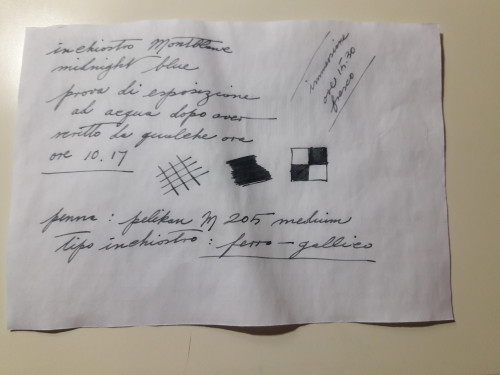 inchiostro Montblanc
midnight blue
prova di esposizione
ad acqua dopo aver
scritto da qualche ora
ore 10.17
immersione
ore 15.30
fresco
penna : pelikan M 205 medium
tipo inchiostro : ferro-gallico